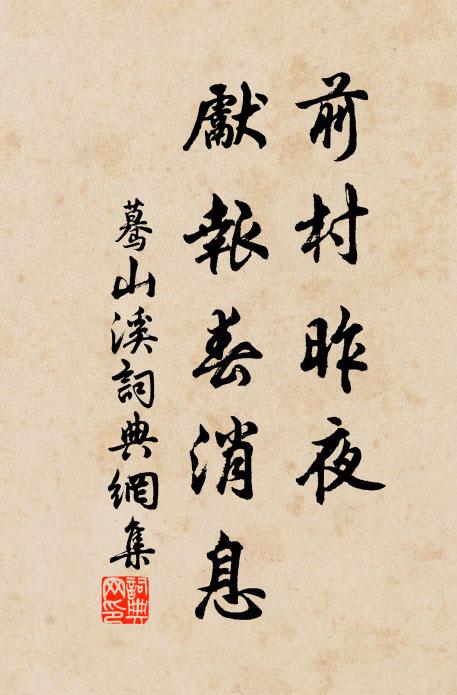 前村昨夜
獻報春消息
驀山溪詞典網集
詞典
网印